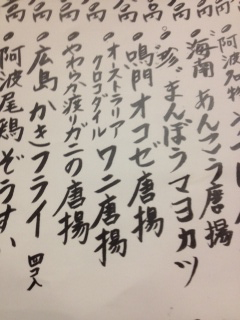 高 高 高 高 高 高 高
●阿波名物
●海南あんこう唐揚
●珍 まんぼうマヨカツ
●鳴門オコゼ唐揚
●オーストラリアクロコダイル ワニ唐揚
●やわらか渡りガニの唐揚
●広島かきフライ 四コ入
●阿波尾鶏ぞうすい